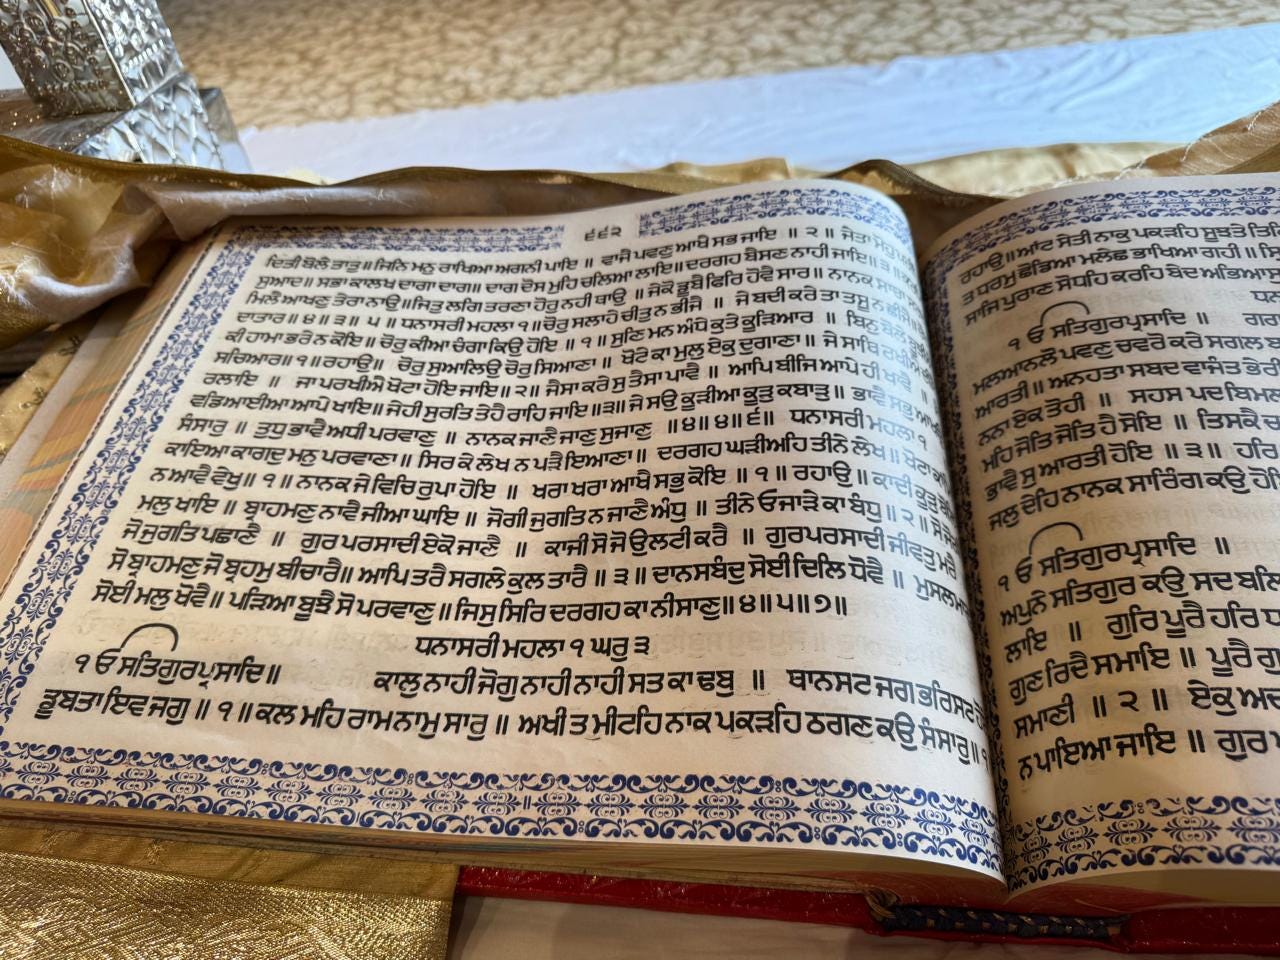 ੬੬੨
ਚਿਤੀ ਬੋਲੈ ਤਾਤੁ॥ ਜਿਨਿ ਮਨੁ ਰਾਖਿਆ ਅਗਨੀ ਪਾਇ ॥ ਵਾਜੈ ਪਵਣੁ ਆਖੈ ਸਭ ਜਾਇ ॥ ੨ ॥ ਜੇਤਾ ਮੋਹੁ
ਸੁਆਦ॥ ਸਭਾ ਕਾਲਖ ਦਾਗਾ ਦਾਗ॥ ਦਾਗ ਦੋਸ ਮੁਹਿ ਚਲਿਆ ਲਾਇ॥ ਦਰਗਹ ਬੈਸਣ ਨਾਹੀ ਜਾਇ॥੩॥
ਮਿਲੈ ਆਖਣੁ ਤੇਰਾ ਨਾਉ॥ ਜਿਤੁ ਲਗਿ ਤਰਣਾ ਹੋਰੁ ਨਹੀ ਥਾਉ ॥ ਜੇ ਕੋ ਡੂਬੈ ਫਿਰਿ ਹੋਵੈ ਸਾਰ॥ ਨਾਨਕ ਸਾਚਾ
ਦਾਤਾਰ॥੪॥੩॥ ੫ ॥ ਧਨਾਸਰੀ ਮਹਲਾ ੧॥ ਚੋਰੁ ਸਲਾਹੇ ਚੀਤੁ ਨ ਭੀਜੈ ॥ ਜੇ ਬਦੀ ਕਰੇ ਤਾ ਤਸੂ ਨ ਛੀਜੈ॥
ਕੀ ਹਾਮਾ ਭਰੇ ਨ ਕੋਇ॥ ਚੋਰੁ ਕੀਆ ਚੰਗਾ ਕਿਉ ਹੋਇ ॥ ੧॥ ਸੁਣਿ ਮਨ ਅੰਧੇ ਕੁਤੇ ਕੂੜਿਆਰ ॥ ਬਿਨੁ ਬੋਲੇ
ਸਚਿਆਰ॥੧॥ਰਹਾਉ॥ ਚੋਰੁ ਸੁਆਲਿਉ ਚੋਰੁ ਸਿਆਣਾ ॥ ਖੋਟੇ ਕਾ ਮੁਲੁ ਏਕੁ ਦੁਗਾਣਾ॥ ਜੇ ਸਾਥਿ ਰਖੀਐ
ਰਲਾਇ ॥ ਜਾ ਪਰਖੀਐ ਖੋਟਾ ਹੋਇ ਜਾਇ॥੨॥ ਜੈਸਾ ਕਰੇ ਸੁ ਤੈਸਾ ਪਾਵੈ ॥ ਆਪਿ ਬੀਜਿ ਆਪੇ ਹੀ ਖਾਵੈ
ਵਡਿਆਈਆ ਆਪੇ ਖਾਇ॥ ਜੇਹੀ ਸੁਰਤਿ ਤੇਹੈ ਰਾਹਿ ਜਾਇ॥੩॥ ਜੇ ਸਉ ਕੂੜੀਆ ਕੂੜੁ ਕਬਾੜੁ॥ ਭਾਵੈ ਸਭੁ
ਸੰਸਾਰੁ ॥ ਤੁਧੁ ਭਾਵੈ ਅਧੀ ਪਰਵਾਣੁ ॥ ਨਾਨਕ ਜਾਣੈ ਜਾਣੁ ਸੁਜਾਣੁ ॥੪॥੪॥੬॥ ਧਨਾਸਰੀ ਮਹਲਾ ੧
ਕਾਇਆ ਕਾਗਦੁ ਮਨੁ ਪਰਵਾਣਾ॥ ਸਿਰ ਕੇ ਲੇਖ ਨ ਪੜੈ ਇਆਣਾ॥ ਦਰਗਹ ਘੜੀਅਹਿ ਤੀਨੇ ਲੇਖ॥ ਖੋਟਾ
ਨ ਆਵੈ ਵੇਖੁ॥ ੧॥ ਨਾਨਕ ਜੇ ਵਿਚਿ ਰੁਪਾ ਹੋਇ ॥ ਖਰਾ ਖਰਾ ਆਖੈ ਸਭੁ ਕੋਇ ॥ ੧॥ ਰਹਾਉ॥ ਕਾਦੀ ਕੂੜੁ
ਮਲੁ ਖਾਇ॥ ਬ੍ਰਾਹਮਣੁ ਨਾਵੈ ਜੀਆ ਘਾਇ॥ ਜੋਗੀ ਜੁਗਤਿ ਨ ਜਾਣੈ ਅੰਧੁ ॥ ਤੀਨੇ ਓਜਾੜੇ ਕਾ ਬੰਧੁ॥੨॥ ਸੋ ਜੋਗੀ
ਜੋ ਜੁਗਤਿ ਪਛਾਣੈ ॥ ਗੁਰ ਪਰਸਾਦੀ ਏਕੋ ਜਾਣੈ ॥ ਕਾਜੀ ਸੋ ਜੋ ਉਲਟੀ ਕਰੈ ॥ ਗੁਰ ਪਰਸਾਦੀ ਜੀਵਤੁ ਮਰੈ
ਸੋ ਬ੍ਰਾਹਮਣੁ ਜੋ ਬ੍ਰਹਮੁ ਬੀਚਾਰੈ॥ ਆਪਿ ਤਰੈ ਸਗਲੇ ਕੁਲ ਤਾਰੈ ॥੩॥ ਦਾਨਸਬੰਦੁ ਸੋਈ ਦਿਲਿ ਧੋਵੈ ॥ ਮੁਸਲਮਾਣੁ
ਸੋਈ ਮਲੁ ਖੋਵੈ॥ ਪੜਿਆ ਬੂਝੈ ਸੋ ਪਰਵਾਣੁ॥ ਜਿਸੁ ਸਿਰਿ ਦਰਗਹ ਕਾ ਨੀਸਾਣੁ॥੪॥੫॥੭॥
ਧਨਾਸਰੀ ਮਹਲਾ ੧ ਘਰੁ ੩
ੴ ਸਤਿਗੁਰ ਪ੍ਰਸਾਦਿ॥ ਕਾਲੁ ਨਾਹੀ ਜੋਗੁ ਨਾਹੀ ਨਾਹੀ ਸਤ ਕਾ ਢਬੁ ॥ ਥਾਨਸਟ ਜਗ ਭਰਿਸਟ
ਡੂਬਤਾ ਇਵ ਜਗੁ ॥੧॥ ਕਲ ਮਹਿ ਰਾਮ ਨਾਮੁ ਸਾਰੁ ॥ ਅਖੀ ਤ ਮੀਟਹਿ ਨਾਕ ਪਕੜਹਿ ਠਗਣ ਕਉ ਸੰਸਾਰੁ॥
ਰਹਾਉ॥ ਆਂਟ ਸੇਤੀ ਨਾਕੁ ਪਕੜਹਿ ਸੂਝਤੇ
ਤ ਧਰਮੁ ਛੋਡਿਆ ਮਲੇਛ ਭਾਖਿਆ ਗਹੀ॥
ਸਾਜਿ ਪੁਰਾਣ ਸੋਧਹਿ ਕਰਹਿ ਬੇਦ ਅਭਿਆਸੁ
ੴ ਸਤਿਗੁਰ ਪ੍ਰਸਾਦਿ ॥
ਮਲਆਨਲੋ ਪਵਣੁ ਚਵਰੋ ਕਰੇ ਸਗਲ
ਆਰਤੀ॥ ਅਨਹਤਾ ਸਬਦ ਵਾਜੰਤ ਭੇਰੀ
ਨਨਾ ਏਕ ਤੋਹੀ ॥ ਸਹਸ ਪਦ ਬਿਮਲ
ਮਹਿ ਜੋਤਿ ਜੋਤਿ ਹੈ ਸੋਇ ॥ ਤਿਸਕੈ
ਭਾਵੈ ਸੁ ਆਰਤੀ ਹੋਇ ॥੩॥ ਹਰਿ
ਜਲੁ ਦੇਹਿ ਨਾਨਕ ਸਾਰਿੰਗ ਕਉ ਹੋਇ
ੴ ਸਤਿਗੁਰ ਪ੍ਰਸਾਦਿ ॥
ਅਪੁਨੇ ਸਤਿਗੁਰ ਕਉ ਸਦ ਬਲਿ
ਲਾਇ ॥ ਗੁਰਿ ਪੂਰੈ ਹਰਿ
ਗੁਣ ਰਿਦੈ ਸਮਾਇ ॥ ਪੂਰੈ
ਸਮਾਣੀ ॥੨॥ ਏਕੁ
ਨ ਪਾਇਆ ਜਾਇ ॥ ਗੁਰ